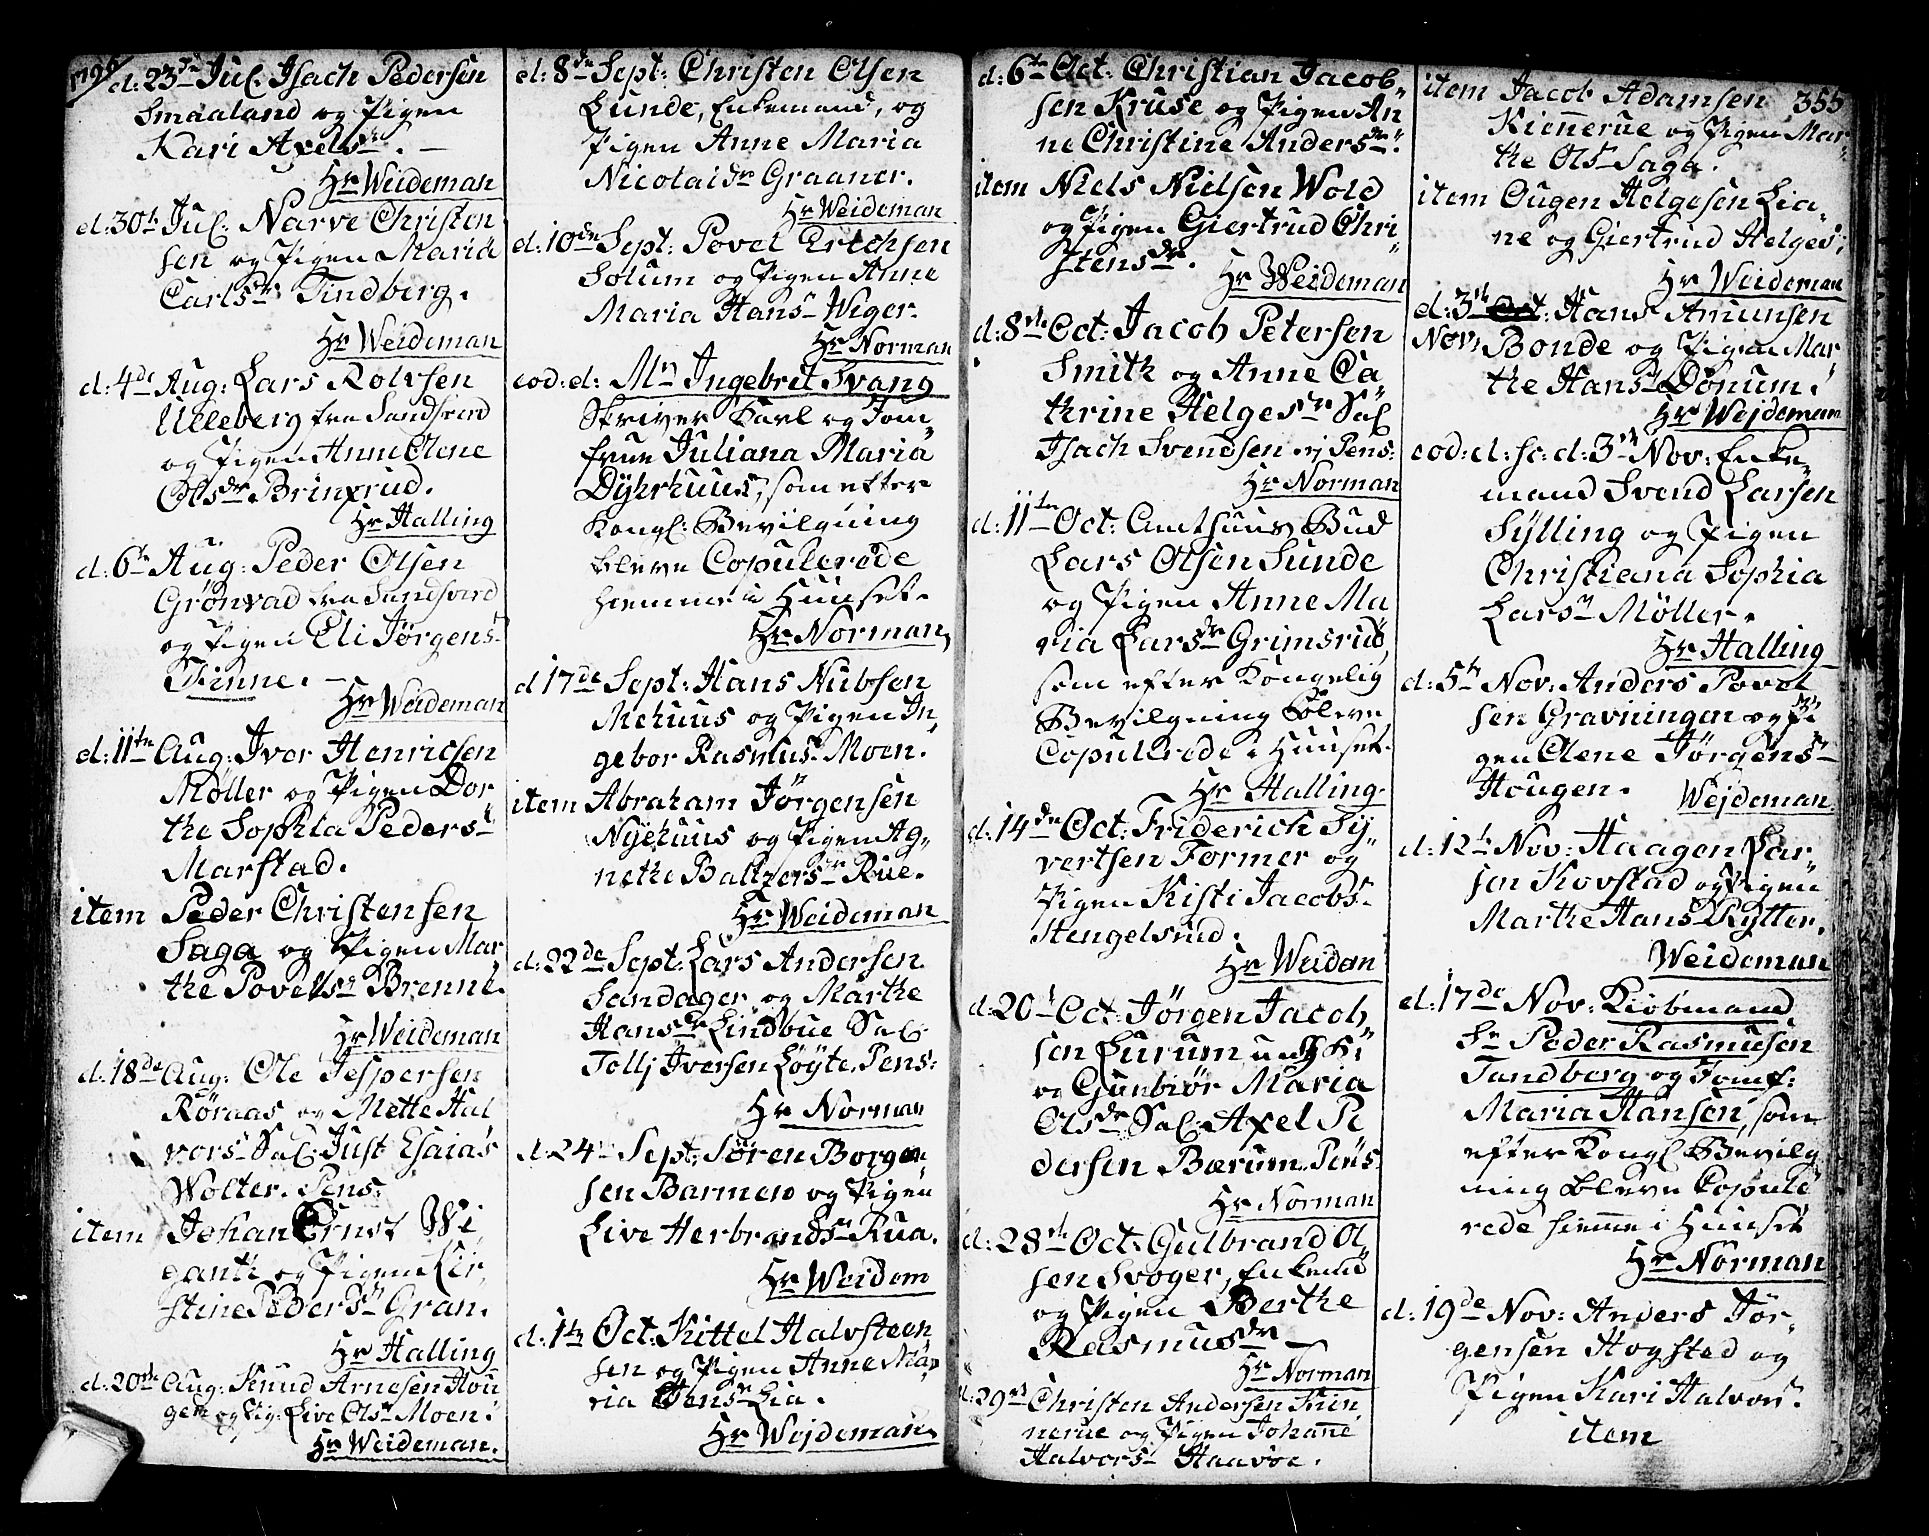 1796
d: 23de Jul. Isach Pedersen
Smaaland og Pigen
Kari Axelsdr. —
Hr Weideman
d: 30te Jul: Narve Christen
sen og Pigen Maria
Carlsdr Tindberg.
Hr Weideman
d: 4de Aug: Lars Rolvsen
Ulleberg fra Sandsverd
og Pigen Anne Olene
Olsdr Brinxrud.
Hr Halling
d: 6te Aug: Peder Olsen
Grönvad fra Sandsverd
og Pigen Eli Jørgens-
Finne. —
Hr Weideman
d: 11te Aug: Iver Henricsen
Møller og Pigen Dor
the Sophia Pedersdr
Marstad.
item Peder Christensen
Saga og Pigen Mar
the Povelsdr Brenne.
Hr Weideman
d: 18de Aug: Ole Jespersen
Röraas og Mette Hal
vorsdr Sal: Just Esaias
Wolter. Pens:
item Johan Ernst Wi
gant og Pigen Kir
stine Pedersdr Gran.
Hr Halling
d: 20de Aug: Knud Arnesen Hou
gen og Pig: Live Olsdr Moen.
Hr Weideman.
d: 8de Sept: Christen Olsen
Lunde, Enkemand, og
Pigen Anne Maria
Nicolaidr Graaner.
Hr Weideman
d: 10de Sept: Povel Erichsen
Solum og Pigen Anne
Maria Hansdr Wiger.
Hr Norman
eod: d: Mr Ingebret Svang
Skriver Karl og Jom
frue Juliana Maria
Dyhrhuus, som efter
Kongl: Bevilgning
bleve Copulerede
hiemme i Huuset.
Hr Norman
d 17de Sept: Hans Nubsen
Mehuus og Pigen In
gebor Rasmusdr Moen.
item Abraham Jörgensen
Nyehuus og Pigen Ag-
nethe Baltzersdr Rue.
Hr Weideman
d: 22de Sept: Lars Andersen
Sandager og Marthe
Hansdr Lindbue Sal:
Tollj Iversen Löyte. Pens:
Hr Norman
d: 24 Sept: Sören Borgen
sen Barmen og Pigen
Live Herbrandsdr Rua.
Hr Weidem
d: 1te Oct: Kittel Halvsteen
sen og Pigen Anne Ma
ria Jensdr Lia.
Hr Wejdeman.
d: 6te Oct: Christian Jacob
sen Kruse og Pigen An
ne Christine Andersdr.
item Niels Nielsen Wold
og Pigen Giertrud Chri
stensdr.
Hr Weideman
d: 8de Oct: Jacob Petersen
Smith og Anne Ca
thrine Helgesdr Sal
Isach Svendsen ej Pens:
Hr Norman
d: 11te Oct: Amthuus Bud
Lars Olsen Sunde
og Pigen Anne Ma
ria Larsdr Grimsrud,
som efter Kongelig
Bevilgning bleve
Copulerede i Huuset.
Hr Halling.
d: 14de Oct: Friderich Sy
vertsen Former og
Pigen Kisti Jacobs-
Stengelsrud.
Hr Weidan
d: 20de Oct: Jörgen Jacob
sen Lurum
og Gunbiør Maria
Olsdr Sal: Axel Pe
dersen Bærum. Pens
Hr Norman
d: 28de Oct: Gulbrand Ol
sen Svoger, Enkemd
og Pigen Berthe
Rasmusdr —
Hr Norman
d: 29de Christen Andersen Kin
nerue og Pigen Johanne
Halvorsdr Haavoe.
355
item Jacob Adamsen
Kinnerue og Pigen Mar
the Olsdr Saga.
item Ougen Helgesen Lia
ne og Giertrud Helges:
Hr Weideman
d: 3de Oct: Hans Amunsen
Nov: Bonde og Pigen Mar
the Hansdr Dönum.
Hr Wejdeman
eod: d: sc: d: 3de Nov: Enke
mand Svend Larsen
Sylling og Pigen
Christiana Sophia
Larsdr Møller.
Hr Halling
d: 5te Nov: Anders Povel
sen Gravningen og Pi
gen Olene Jörgensdr
Hougen. Wejdeman
d: 12te Nov: Haagen Lar
sen Kovstad og Pigen
Marthe Hansdr Rytter.
Weideman
d: 17de Nov: Kiöbmand
Sr Peder Rasmusen
Tandberg og Jomf:
Maria Hansen, som
efter Kongl Bevilg
ning bleve Copule
rede hiemme i Huuset
Hr Norman
d: 19de Nov: Anders Jör-
gensen Hogsted og
Pigen Kari Halvors:
item